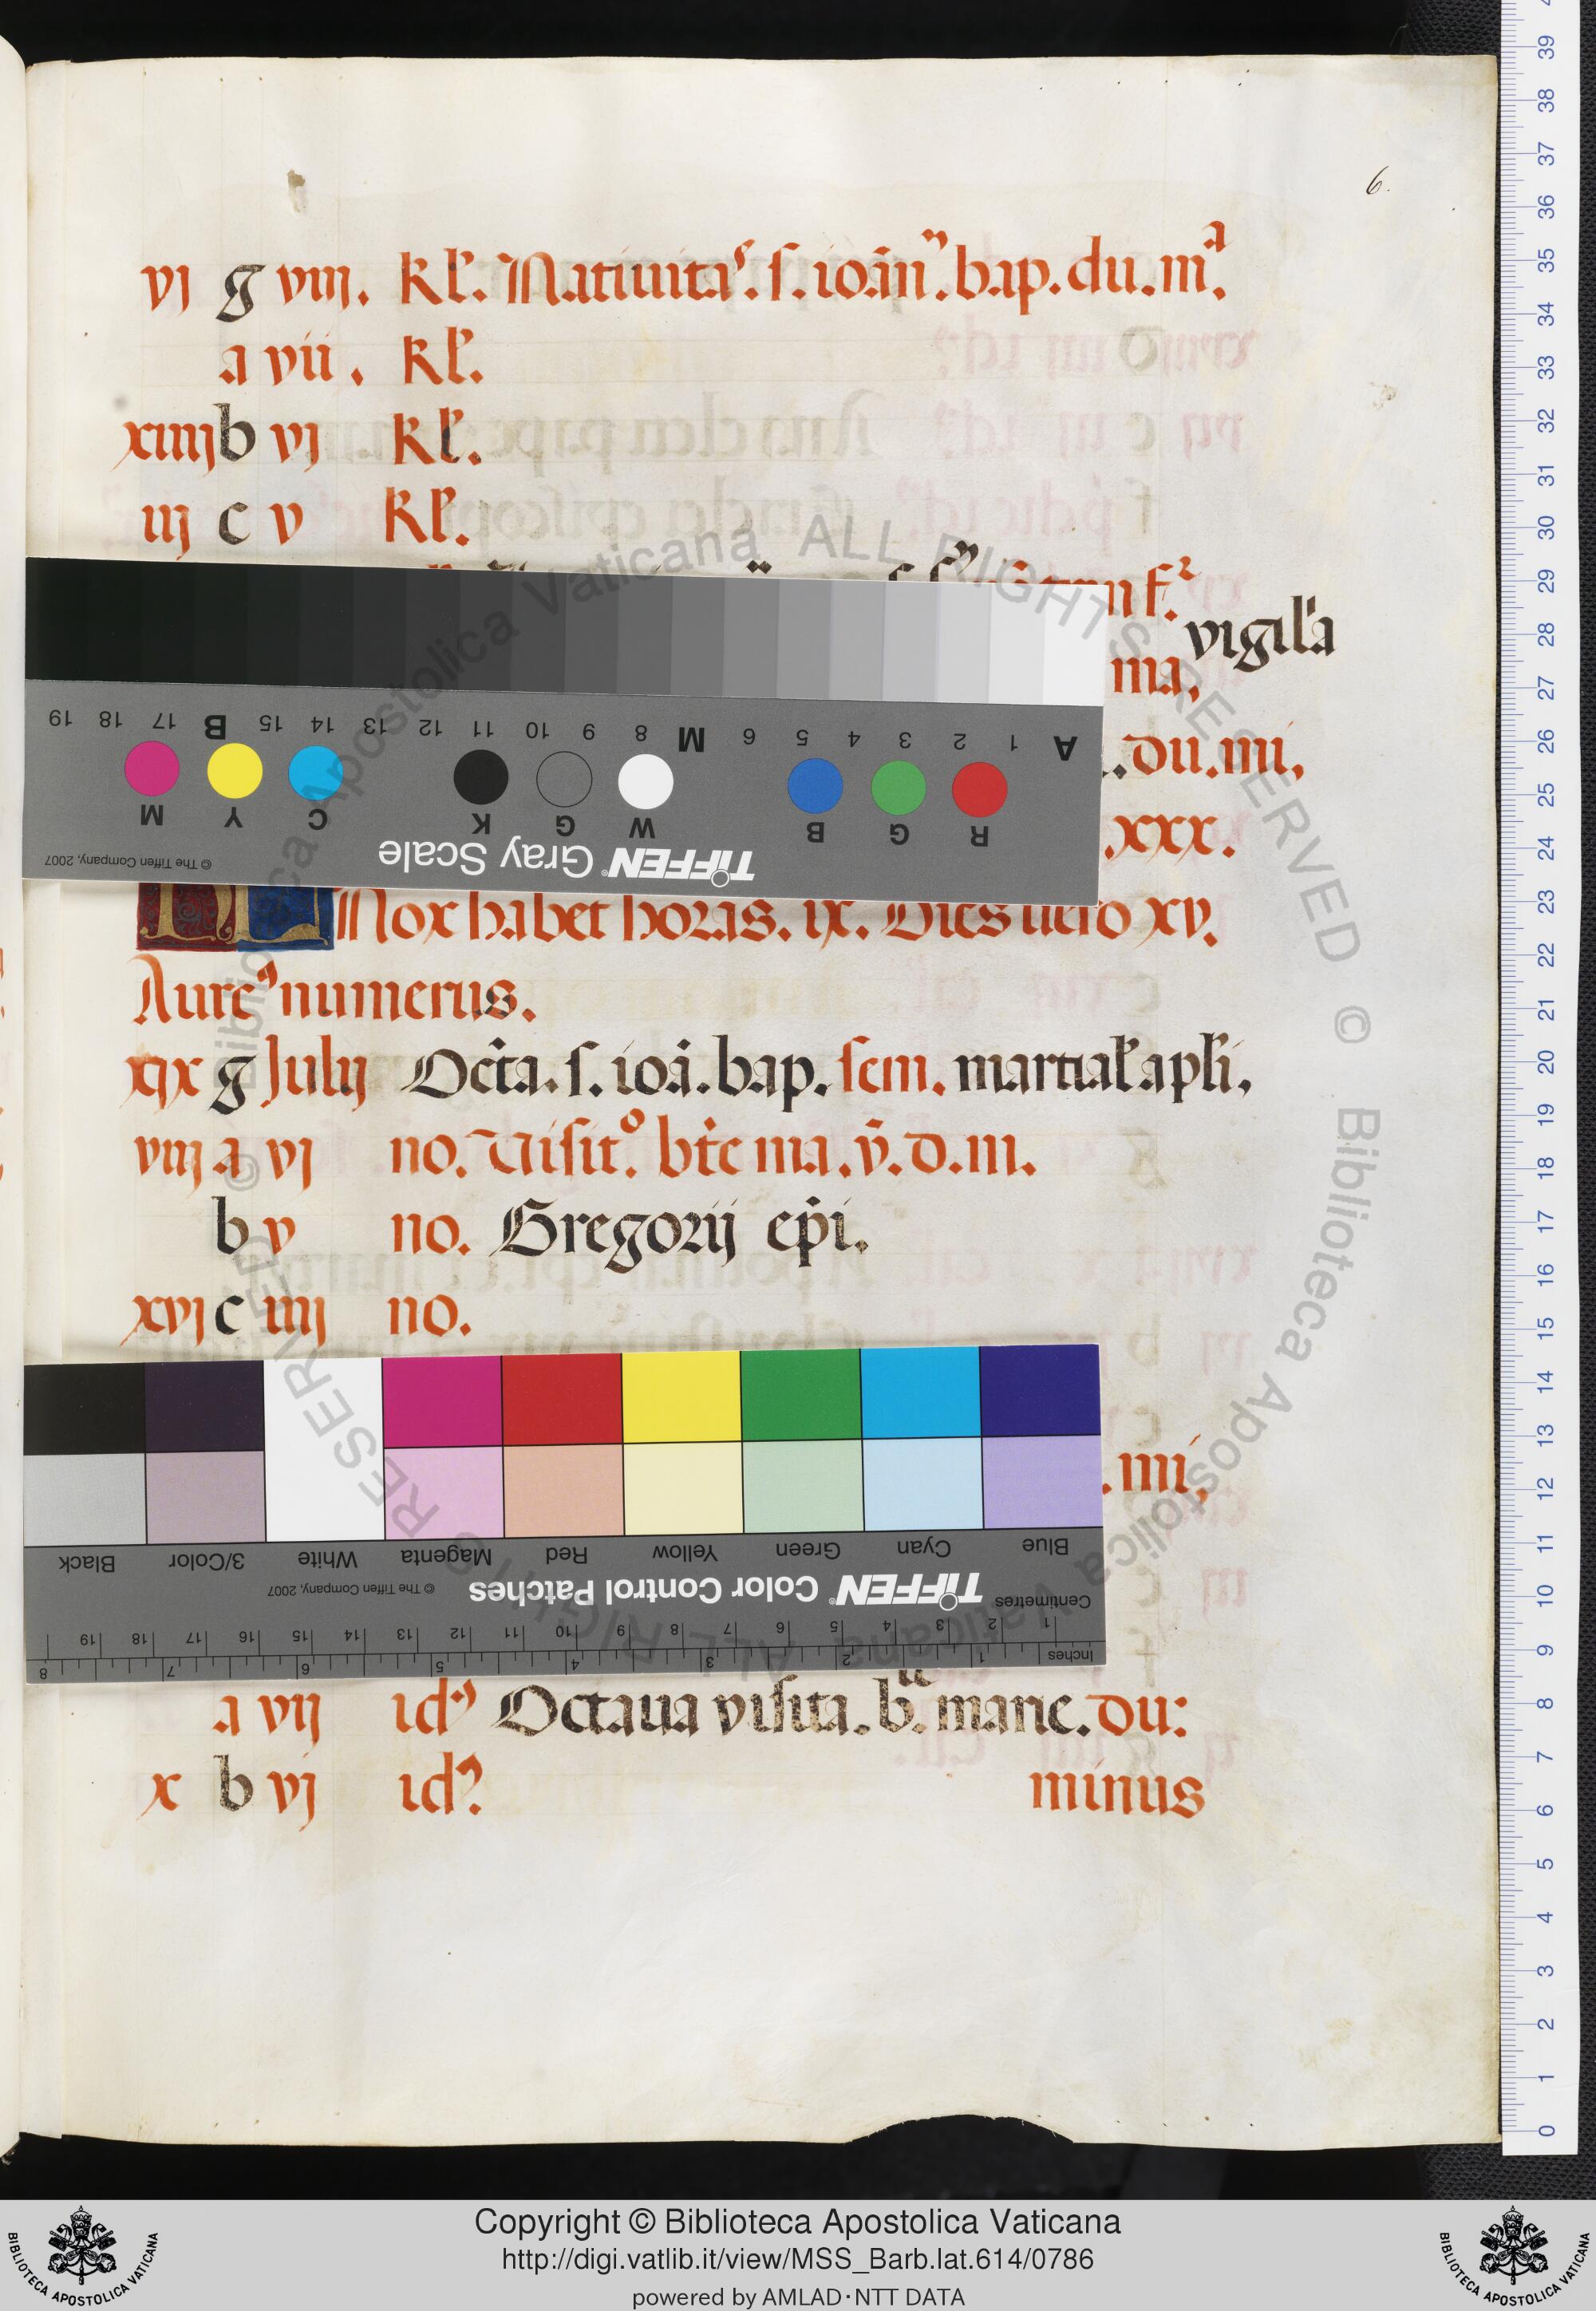 6.
vj g viij. kl̄. Natiuitaˢ. s. ioān̄. bap. du. mᵃ.
a vii. kl̄.
xiiij b vj kl̄.
iij c v kl̄.
n f.²
vigil'a
ma.
.du. mi.
.xxx.
Nox habet horas. ix. Dies uero xv.
Aureꝰ numerus.
xix g Julij Oct̄a. s. ioā. bap. sem. martial' apl'i.
viij a vj no. Uisitᵒ. bt̄e ma. v̄. d. m.
b v no. Gregorij ep̄i.
xvj c iiij no.
.mi,
a vij idꝰ Octaua visita. b. marie. du:
x b vj idꝰ. minus
TIFFEN® Gray Scale
© The Tiffen Company, 2007
R G B W G K C Y M
A 1 2 3 4 5 6 M 8 9 10 11 12 13 14 15 B 17 18 19
Blue Cyan Green Yellow Red Magenta White 3/Color Black
TIFFEN® Color Control Patches
© The Tiffen Company, 2007
Centimetres 1 2 3 4 5 6 7 8 9 10 11 12 13 14 15 16 17 18 19
Inches 1 2 3 4 5 6 7 8
39 38 37 36 35 34 33 32 31 30 29 28 27 26 25 24 23 22 21 20 19 18 17 16 15 14 13 12 11 10 9 8 7 6 5 4 3 2 1 0
© Biblioteca Apostolica Vaticana ALL RIGHTS RESERVED © Biblioteca Apostolica Vaticana ALL RIGHTS RESERVED
Copyright © Biblioteca Apostolica Vaticana
http://digi.vatlib.it/view/MSS_Barb.lat.614/0786
powered by AMLAD·NTT DATA
BIBLIOTECA APOSTOLICA VATICANA
BIBLIOTECA APOSTOLICA VATICANA